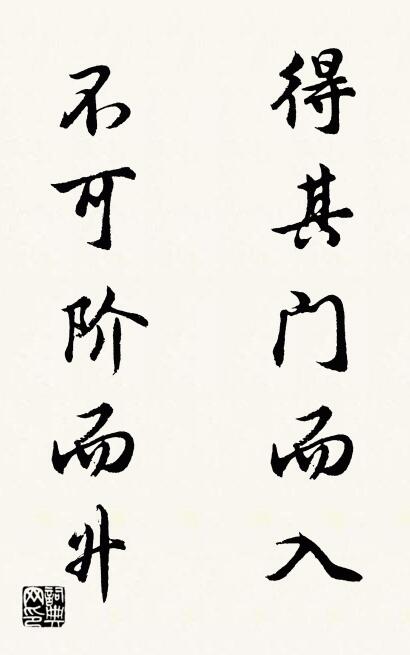 得其门而入
不可阶而升
词典网印